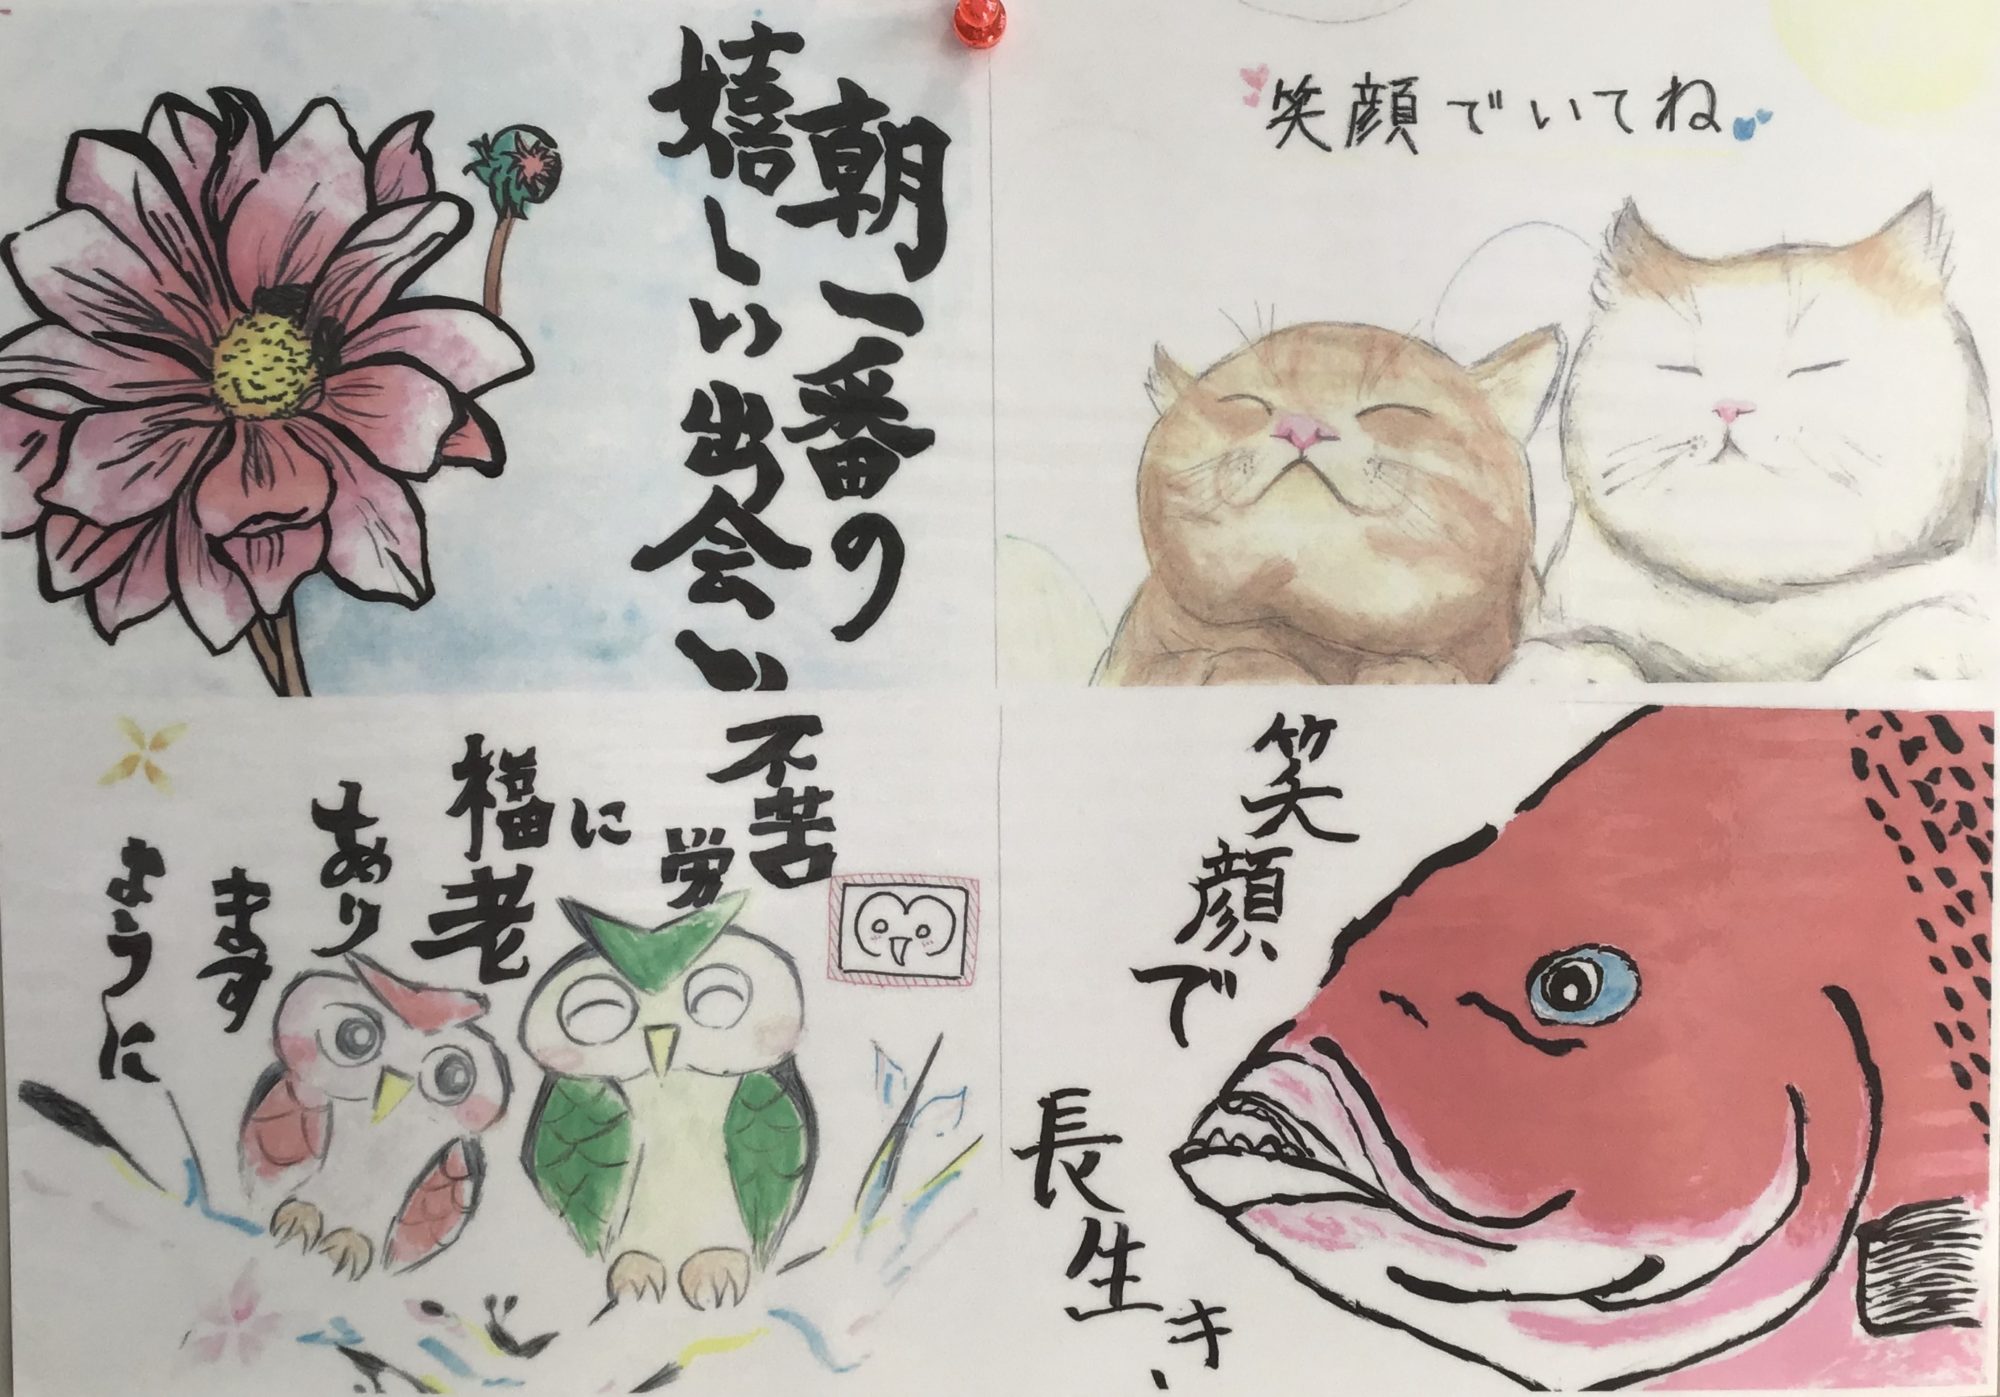 朝一番の
嬉しい出会い
笑顔でいてね
不苦労
に
福老
あり
ます
ように
笑顔で
長生き